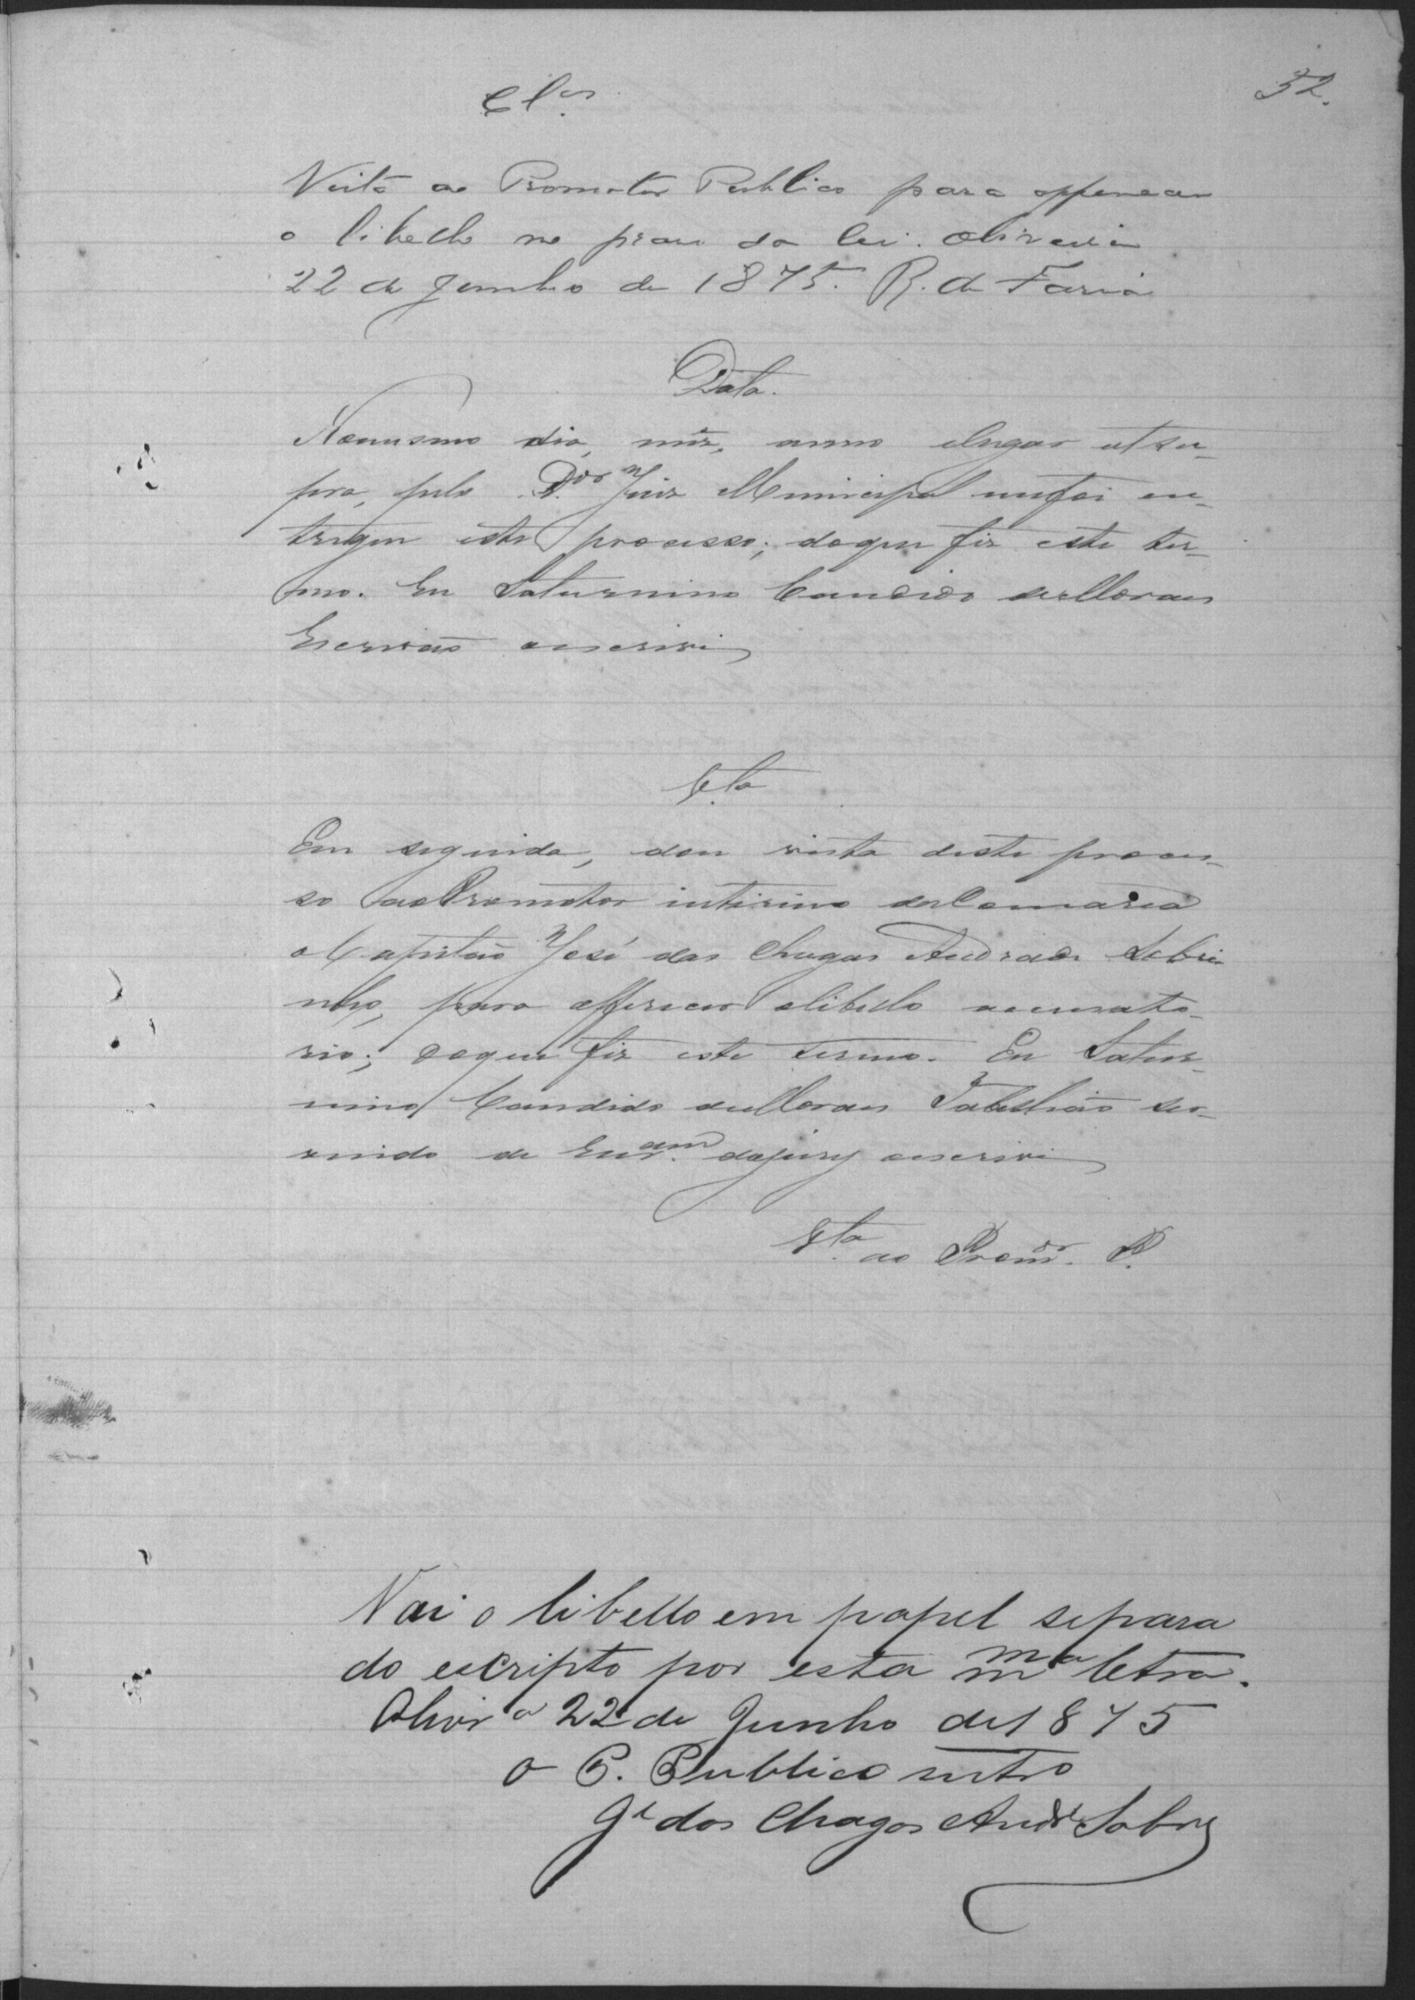 32.
Cl.os
Vista ao Promotor Publico para offerecer
o libello no praso da lei. Oliveira
22 de Junho de 1875. R. de Faria
Data.
No mesmo dia, mês, anno e lugar ut su-
pra, pelo D.or Juiz Municipal me foi en-
tregue este processo; do que fiz este ter-
mo. Eu Saturnino Candido de Moraes
Escrivão o escrivi
V.ta
Em seguida, dou vista deste proces-
so ao Promotor interino da Comarca
o Capitão José das Chagas Andrade Sobri-
nho, para offerecer o libello accusato-
rio; do que fiz este termo. Eu Satur-
nino Candido de Moraes Tabelião ser-
vindo de do jury o escrivi
V.ta ao Prom.or P.
Vai o libello em papel separa
do escripto por esta m.ma letra.
Olivr.a 22 de Junho de 1875
O P. Publico intro
J.e das Chagas Andr.e Sobro